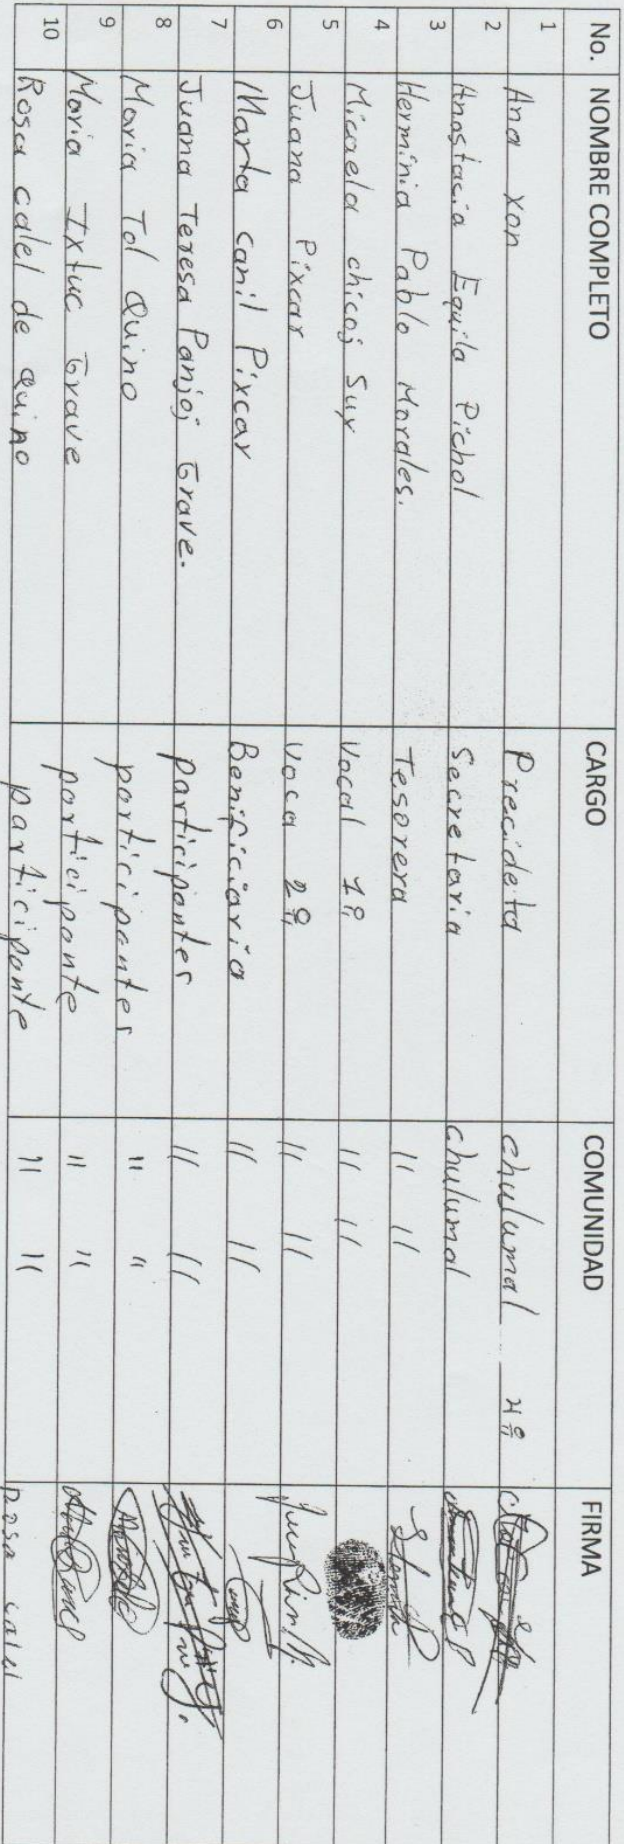 No. NOMBRE COMPLETO CARGO COMUNIDAD FIRMA
1 Ana Xon Precideta chulumal 4º
2 Anastacia Equila Pichol Secretaria chulumal
3 Herminia Pablo Morales. Tesorera " "
4 Micaela chicoj Suy Vocal 1º " "
5 Juana Pixcar Voca 2º " "
6 Marta canil Pixcar Benificiaria " "
7 Juana Teresa Panjoj Grave. participantes " "
8 Maria Tol Quino participantes " "
9 Maria Ixtuc Grave participante " "
10 Rosa calel de Quino participante " " Rosa calel